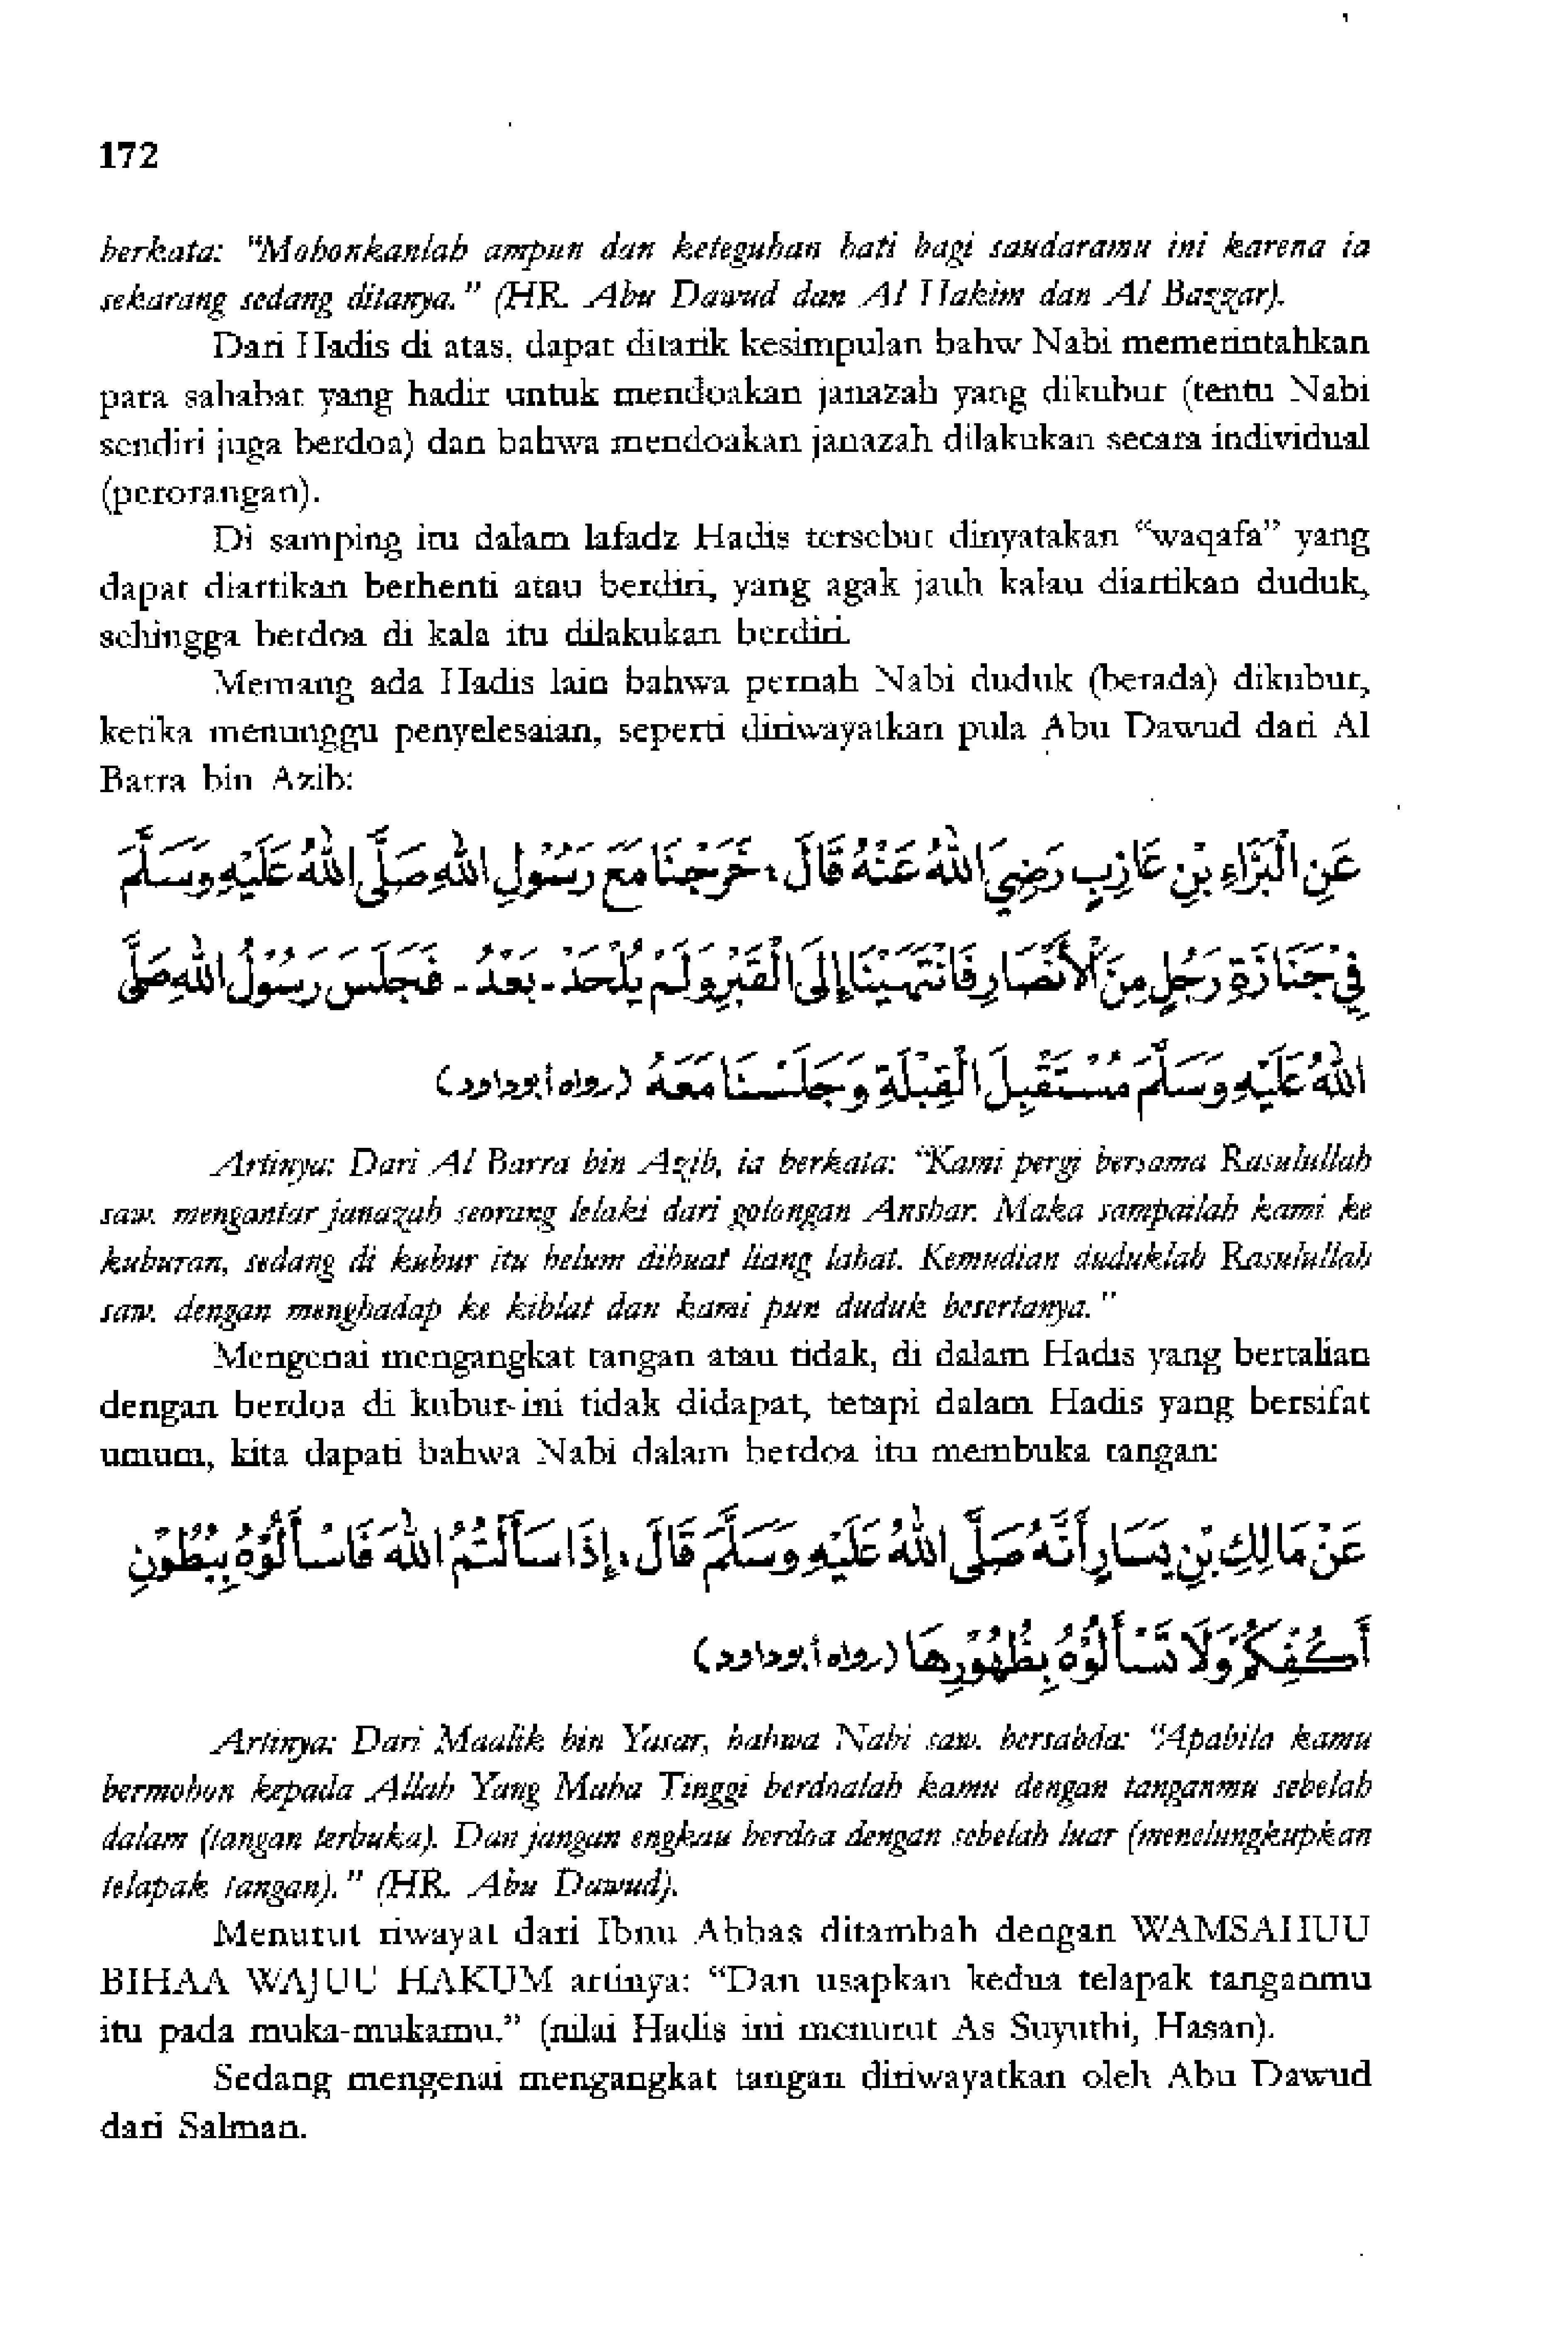 172
berkata: "Mohonkanlah ampun dan keteguhan hati bagi saudaramu ini karena ia
sekarang sedang ditanya." (HR. Abu Dawud dan Al Hakim dan Al Bazzar).
Dari Hadis di atas, dapat ditarik kesimpulan bahw Nabi memerintahkan
para sahabat yang hadir untuk mendoakan janazah yang dikubur (tentu Nabi
sendiri juga berdoa) dan bahwa mendoakan janazah dilakukan secara individual
(perorangan).
Di samping itu dalam lafadz Hadis tersebut dinyatakan “waqafa” yang
dapat diartikan berhenti atau berdiri, yang agak jauh kalau diartikan duduk,
sehingga berdoa di kala itu dilakukan berdiri.
Memang ada Hadis lain bahwa pernah Nabi duduk (berada) dikubur,
ketika menunggu penyelesaian, seperti diriwayatkan pula Abu Dawud dari Al
Barra bin Azib:
عَنِ الْبَرَّاءِ بْنِ عَازِبٍ رَضِيَ اللهُ عَنْهُ قَالَ، خَرَجْنَا مَعَ رَسُوْلِ اللهِ صَلَّى اللهُ عَلَيْهِ وَسَلَّمَ
فِيْ جَنَازَةِ رَجُلٍ مِنَ الْأَنْصَارِ فَانْتَهَيْنَا إِلَى الْقَبْرِ وَلَمْ يُلْحَدْ - بَعْدُ - فَجَلَسَ رَسُوْلُ اللهِ صَلَّى
اللهُ عَلَيْهِ وَسَلَّمَ مُسْتَقْبِلَ الْقِبْلَةِ وَجَلَسْنَا مَعَهُ (رواه أبوداود)
Artinya: Dari Al Barra bin Azib, ia berkata: “Kami pergi bersama Rasulullah
saw. mengantar janazah seorang lelaki dari golongan Anshar. Maka sampailah kami ke
kuburan, sedang di kubur itu belum dibuat liang lahat. Kemudian duduklah Rasulullah
saw. dengan menghadap ke kiblat dan kami pun duduk besertanya."
Mengenai mengangkat tangan atau tidak, di dalam Hadis yang bertalian
dengan berdoa di kubur ini tidak didapat, tetapi dalam Hadis yang bersifat
umum, kita dapati bahwa Nabi dalam berdoa itu membuka tangan:
عَنْ مَالِكِ بْنِ يَسَارٍ أَنَّهُ صَلَّى اللهُ عَلَيْهِ وَسَلَّمَ قَالَ، إِذَا سَأَلْتُمُ اللهَ فَاسْأَلُوْهُ بِبُطُوْنِ
أَكُفِّكُمْ وَلَا تَسْأَلُوْهُ بِظُهُوْرِهَا (رواه أبوداود)
Artinya: Dari Maalik bin Yasar, bahwa Nabi saw. bersabda: “Apabila kamu
bermohon kepada Allah Yang Maha Tinggi berdoalah kamu dengan tanganmu sebelah
dalam (tangan terbuka). Dan jangan engkau berdoa dengan sebelah luar (menelungkupkan
telapak tangan)." (HR. Abu Dawud).
Menurut riwayat dari Ibnu Abbas ditambah dengan WAMSAHUU
BIHAA WAJUU HAKUM artinya: “Dan usapkan kedua telapak tanganmu
itu pada muka-mukamu.” (nilai Hadis ini menurut As Suyuthi, Hasan).
Sedang mengenai mengangkat tangan diriwayatkan oleh Abu Dawud
dari Salman.